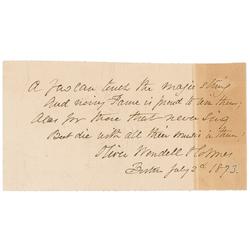 A few can touch the magic string
And noisy Fame is proud to win them;
Alas for those that never sing
But die with all their music in them.
Oliver Wendell Holmes
Boston July 2d 1893.